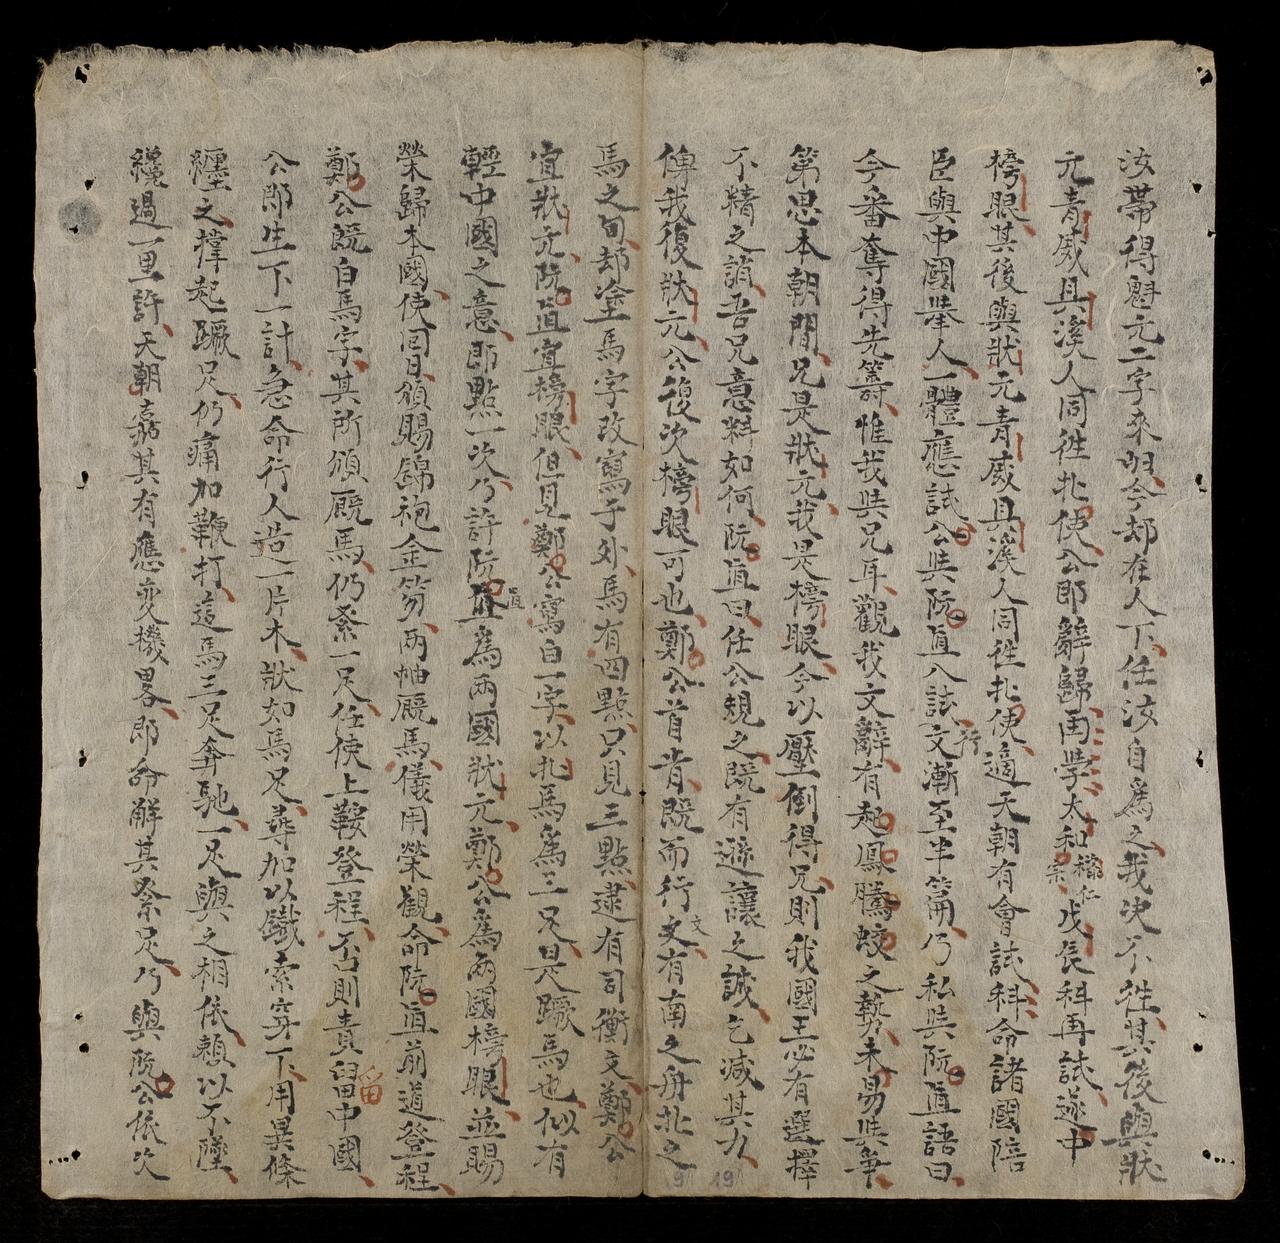 汝帶得魁元二字來胡今却在人下任汝自爲之我决不徃其後與狀
元青威具溪人同徃北使公即辭歸囯學太和穆仁宗戊辰科再試遂中
榜眼其後與狀元青威具溪人同徃北使適天朝有會試科命諸國陪
臣與中國舉人一體應試公與阮直入試行文漸至半篇乃私與阮直語曰
今番奪得先籌惟我與兄耳觀我文辭有起鳳騰蛟之勢未易與爭
第思本朝間兄是狀元我是榜眼今以壓倒得兄則我國王必有選擇
不精之誚吾兄意料如何阮直曰任公規之既有遜讓之誠乞减其力
俾我復狀元公復次榜眼可也鄭公首肯既而行文文有南之舟北之
馬之句却塗馬字改寫于外馬有四點只見三點逮有司衡文鄭公
宜狀元阮直宜榜眼但見鄭公寫白一字以北馬爲三足是蹶馬也似有
輕中國之意即點一次乃許阮直直爲兩國狀元鄭公爲兩國榜眼並賜
榮歸本國使囘日頒賜錦袍金笏兩帙厩馬儀用榮觀命阮直前道登程
鄭公既白馬字其所頒厩馬仍紊一足任使上鞍登程否則責留留中國
公即生下一計急命行人造一片木狀如馬足尋加以鐵索穿下用異條
纏之撑起蹶足仍痛加鞭打這馬三足奔馳一足與之相依賴以不墜
纔過一里許天朝嘉其有應变機畧即命觧其紊足乃與阮公依次
191
191